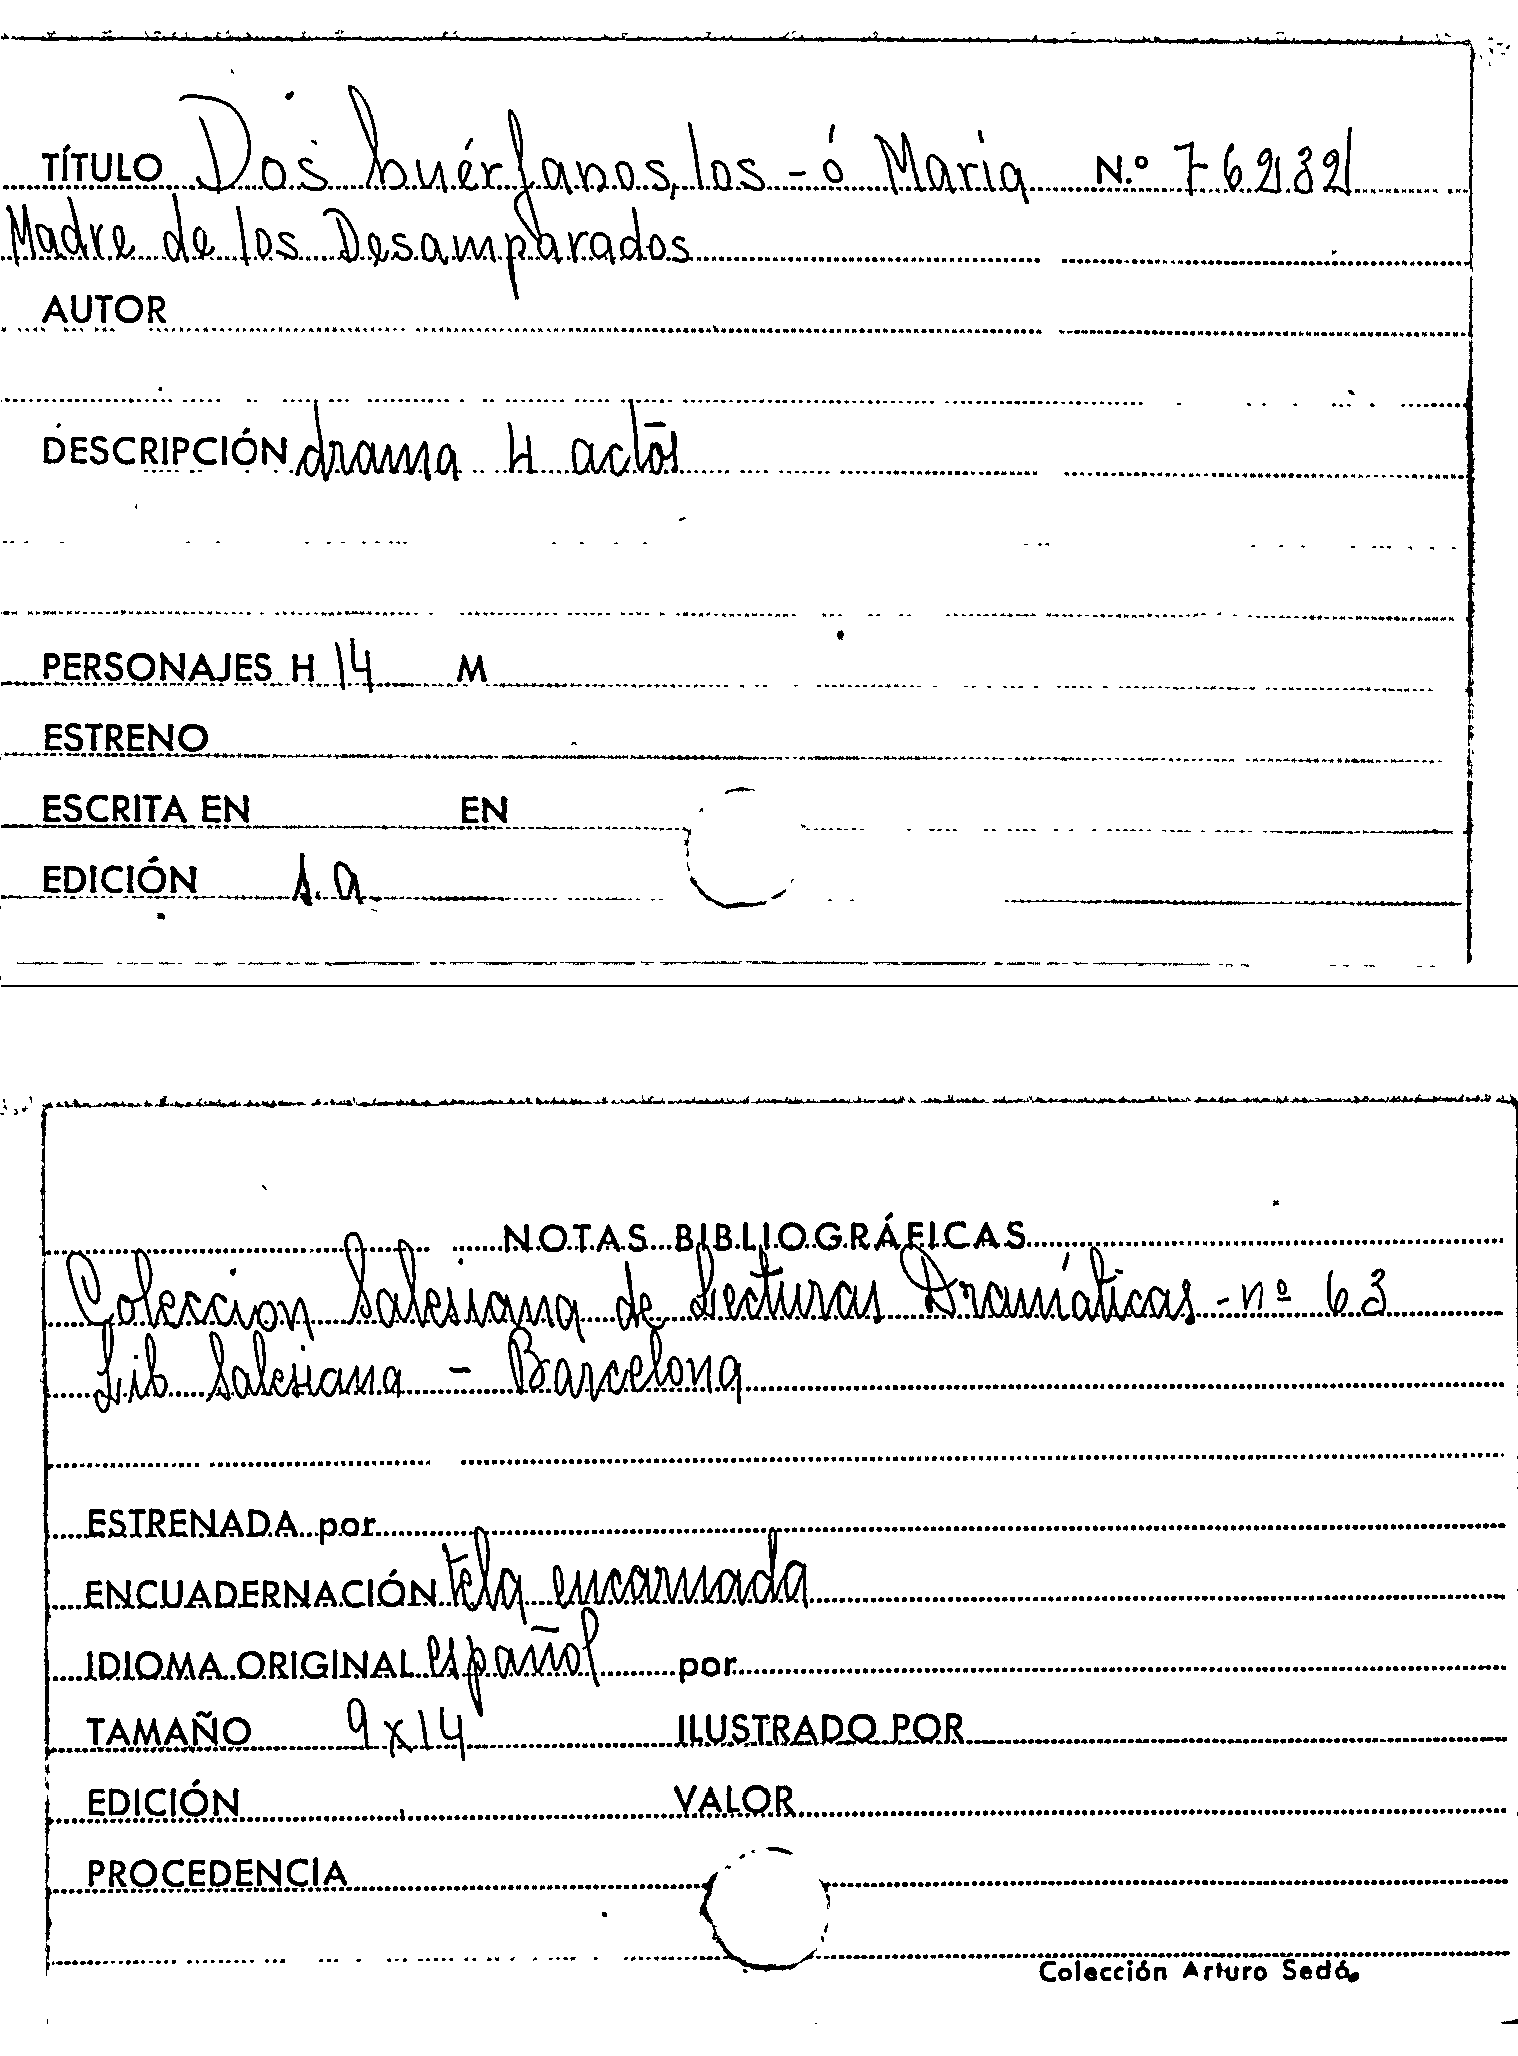 TÍTULO Dos huérfanos, los - ó María N.º 76232
Madre de los Desamparados
AUTOR
DESCRIPCIÓN drama 4 actos
PERSONAJES H 14 M
ESTRENO
ESCRITA EN EN
EDICIÓN s.a.
NOTAS BIBLIOGRÁFICAS
Coleccion Salesiana de Lecturas Dramáticas - nº 63
Lib Salesiana - Barcelona
ESTRENADA por
ENCUADERNACIÓN tela encarnada
IDIOMA ORIGINAL español por
TAMAÑO 9x14 ILUSTRADO POR
EDICIÓN VALOR
PROCEDENCIA
Colección Arturo Sedó